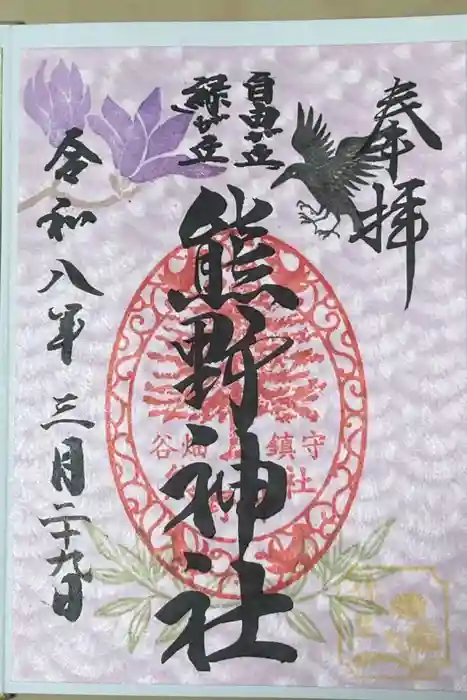 奉拝
自由が丘
緑が丘
熊野神社
令和八年三月二十九日
谷畑
鎮守
社